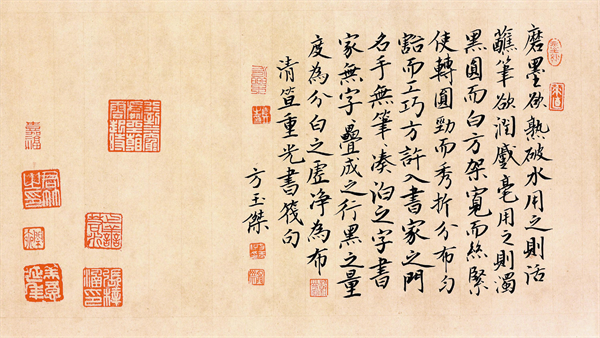 磨墨欲熟破水用之則活
蘸筆欲潤蹙毫用之則濁
黑圓而白方架寬而絲緊
使轉圓勁而秀折分布勻
豁而工巧方許入書家之門
名手無筆凑泊之字書
家無字疊成之行黑之量
度為分白之虛淨為布
清笪重光書筏句
方玉傑